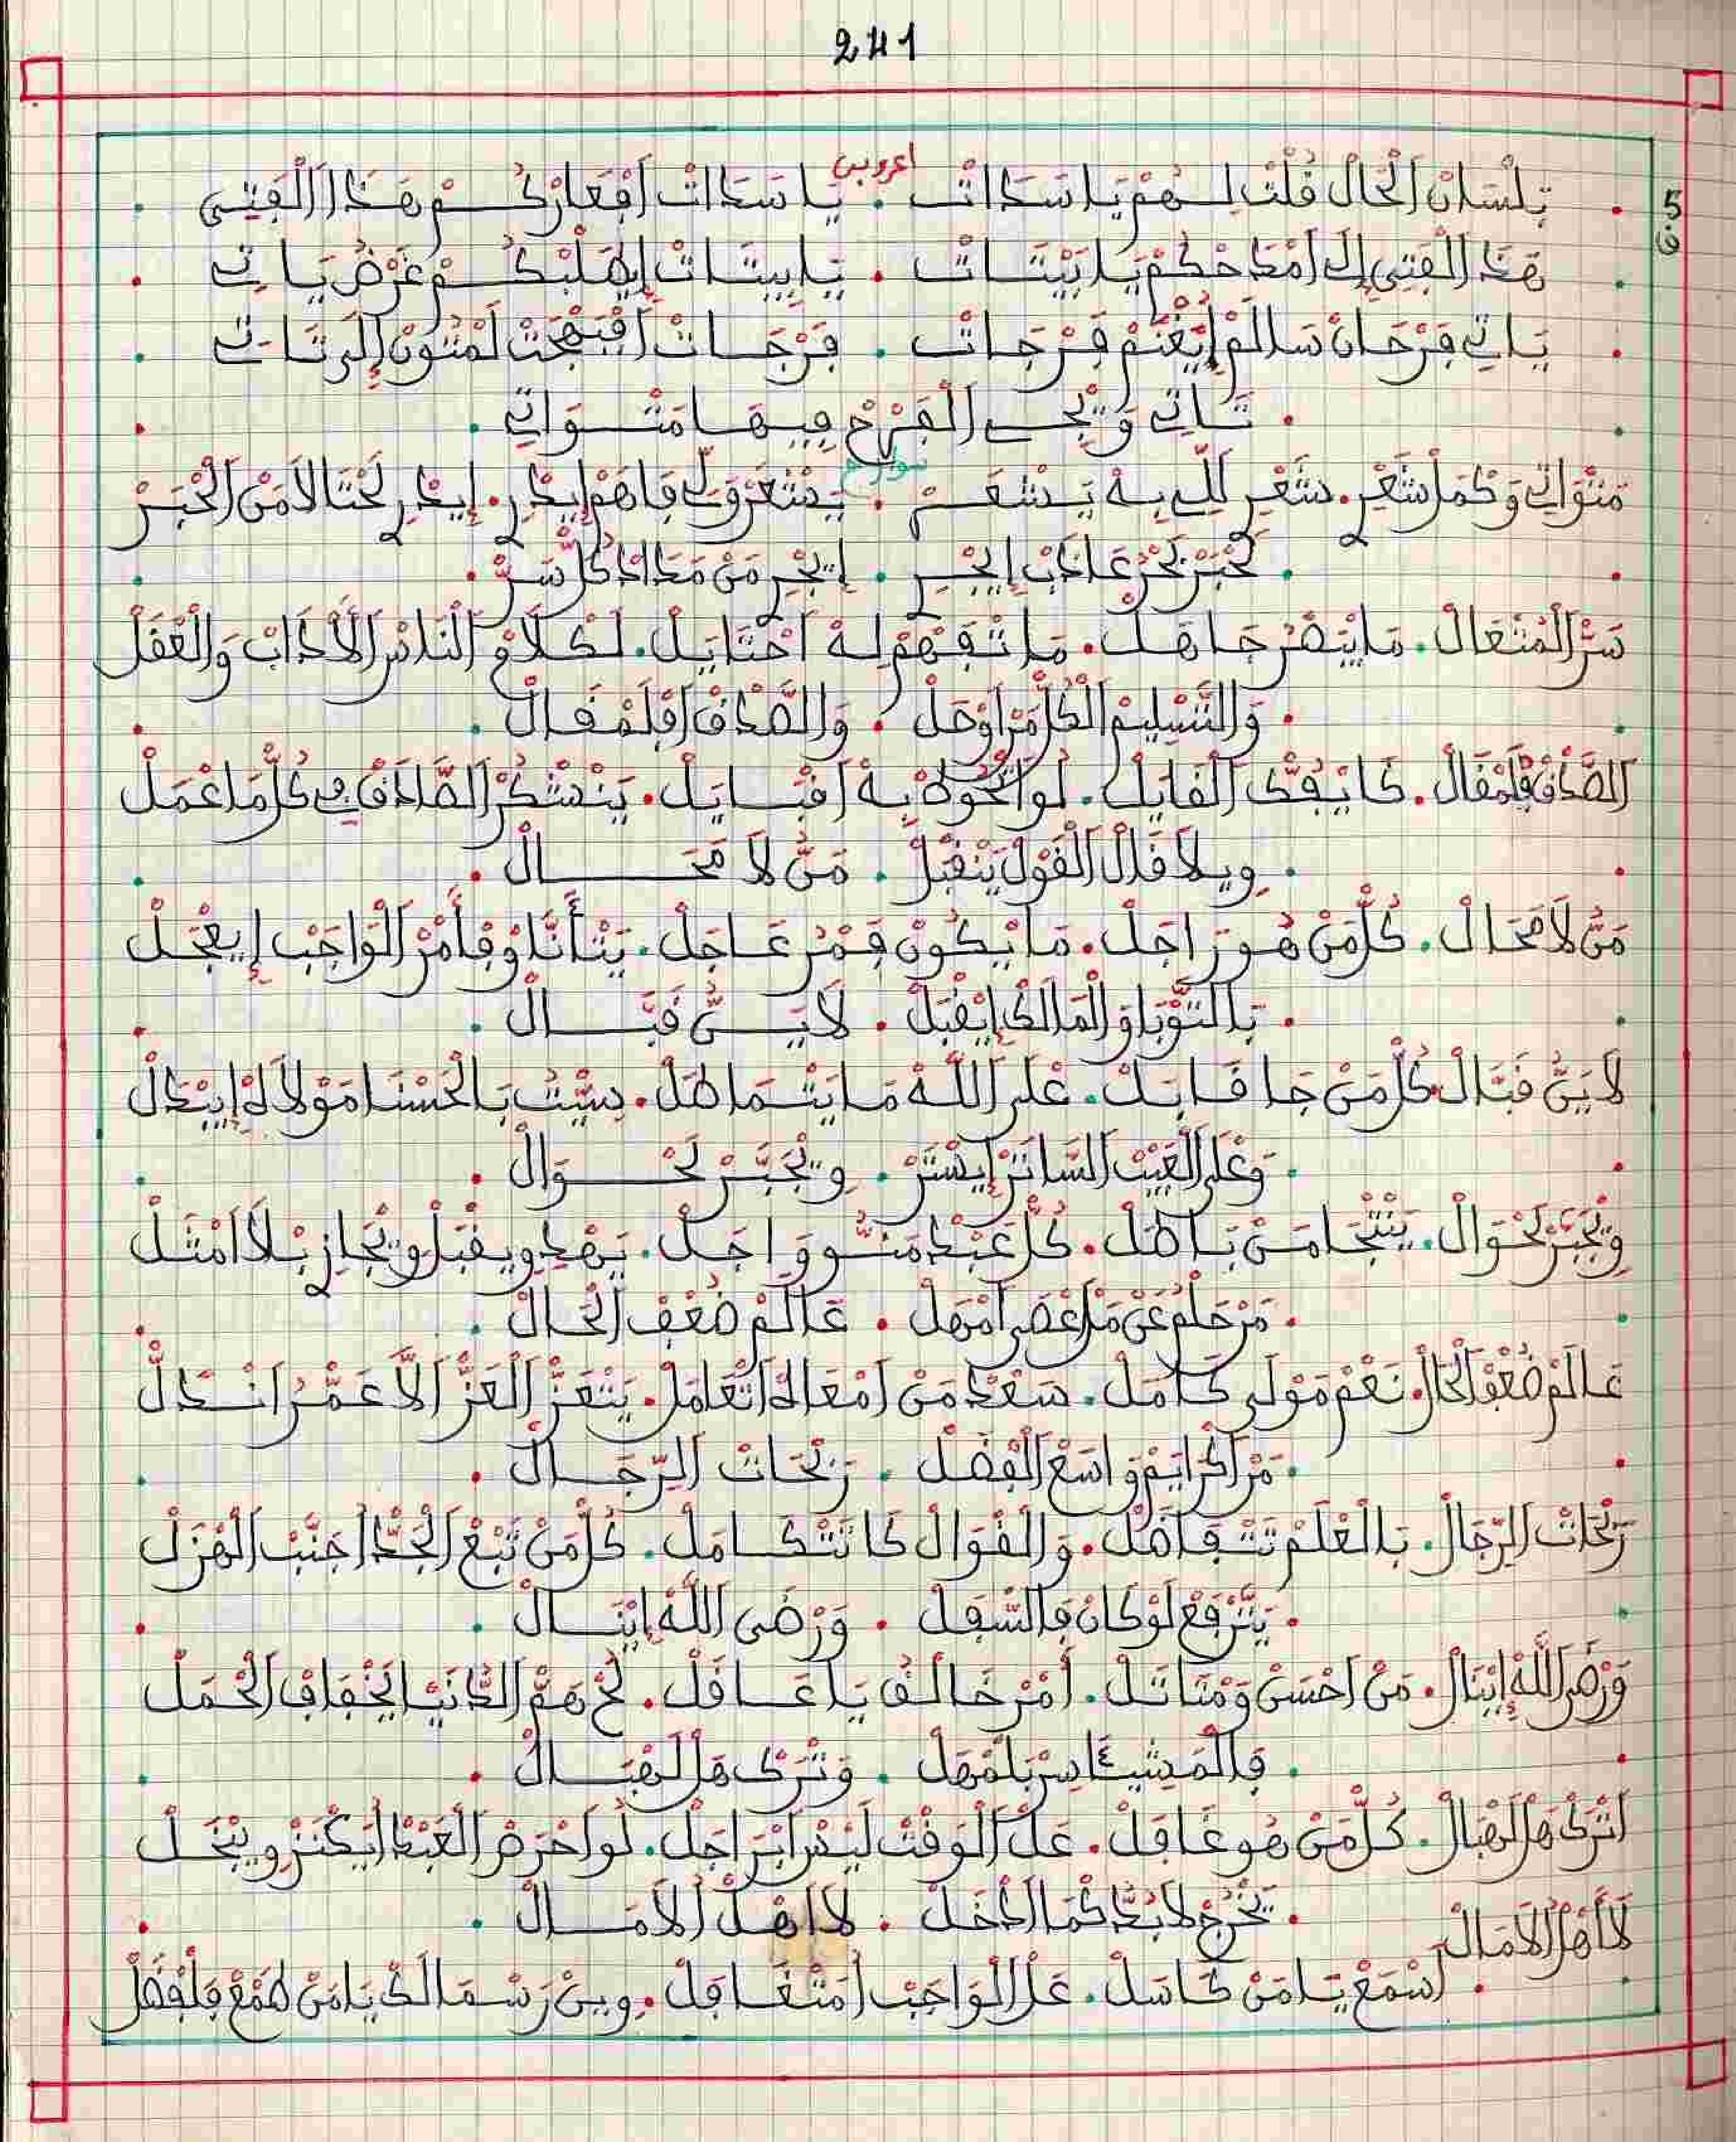 241
اعروبي
5
ق
بلسان الحال قلت لهم يا سدات . يا سدات افعاركم هذا الفتى
هذا الفتى إلى امداحكم يا بيتات . يا بيتات إيطلبكم غرض ياتي
ياتي فرحان سالم إيغنم فرجات . فرجات لمتون إلى تاتي
تاتي ويجي الفرح فيها متواتي
سوارح
متواتي وكمل شعري . شعري للي به يشعر . يشعر ولي فاهم إيدري . إيدري لحتا لا من الخبر
لخبر بحر عاذب إيجري . إيجري من مداد كل سر
سر المتعال . ما ينضر جاهل . ما تفهم له احتايل . لكلام الناس الأداب والعقل
والتسليم الكل من اوحل . والصدق افلمقال
الصدق فلمقال . كا يفك القايل . لو اتخوه به اقبايل . ينشكر الصادق في كل ما عمل
ويلا قال القول ينقبل . من لا محال
من لا محال . كل من هو راجل . ما يكون فمر عاجل . يتأنا وفأمر الواجب إيعجل
بالتوبا والمالك إيقبل . لاين قبال
لاين قبال . كل من جا قابل . على الله ما يتماطل . سيت بالحسنا مولاه إيبدل
وعلى العيب الساتر إيستر . ويجبر لحوال
ويجبر لحوال . ينتجا من باطل . كل عبد منو واجل . يهدي ويقبل ويجازي بلا امثل
من حلم عن من عصى امهل . عالم ضعف الحال
عالم ضعف الحال . نعم مولى كامل . سعد من امعاه اتعامل . يتعز العز الا عمر انذل
من اكرايم واسع الفضل . ربحات الرجال
ربحات الرجال . بالعلم تتفاضل . والقوال كا تتكامل . كل من تبع الجد اجنب الهزل
يترفع لو كان فالسفل . ورضى الله إينال
ورضى الله إينال . من احسن ومناتل . أمر خالف يا غافل . لح هم الدنيا إيخفاف الحمل
فالمشيئا سر بلمهل . وترك هل الهبال
اترك هل الهبال . كل من هو غافل . عل الوقت ليس ابراجل . لو احرص العبد ايكنز ويبخل
يخرج لابد كما ادخل . لا اهل الامال
لا أهل الامال
اسمع يا من كاسل . عل الواجب امتغافل . وين رسمالك يا من طمع فلفضل